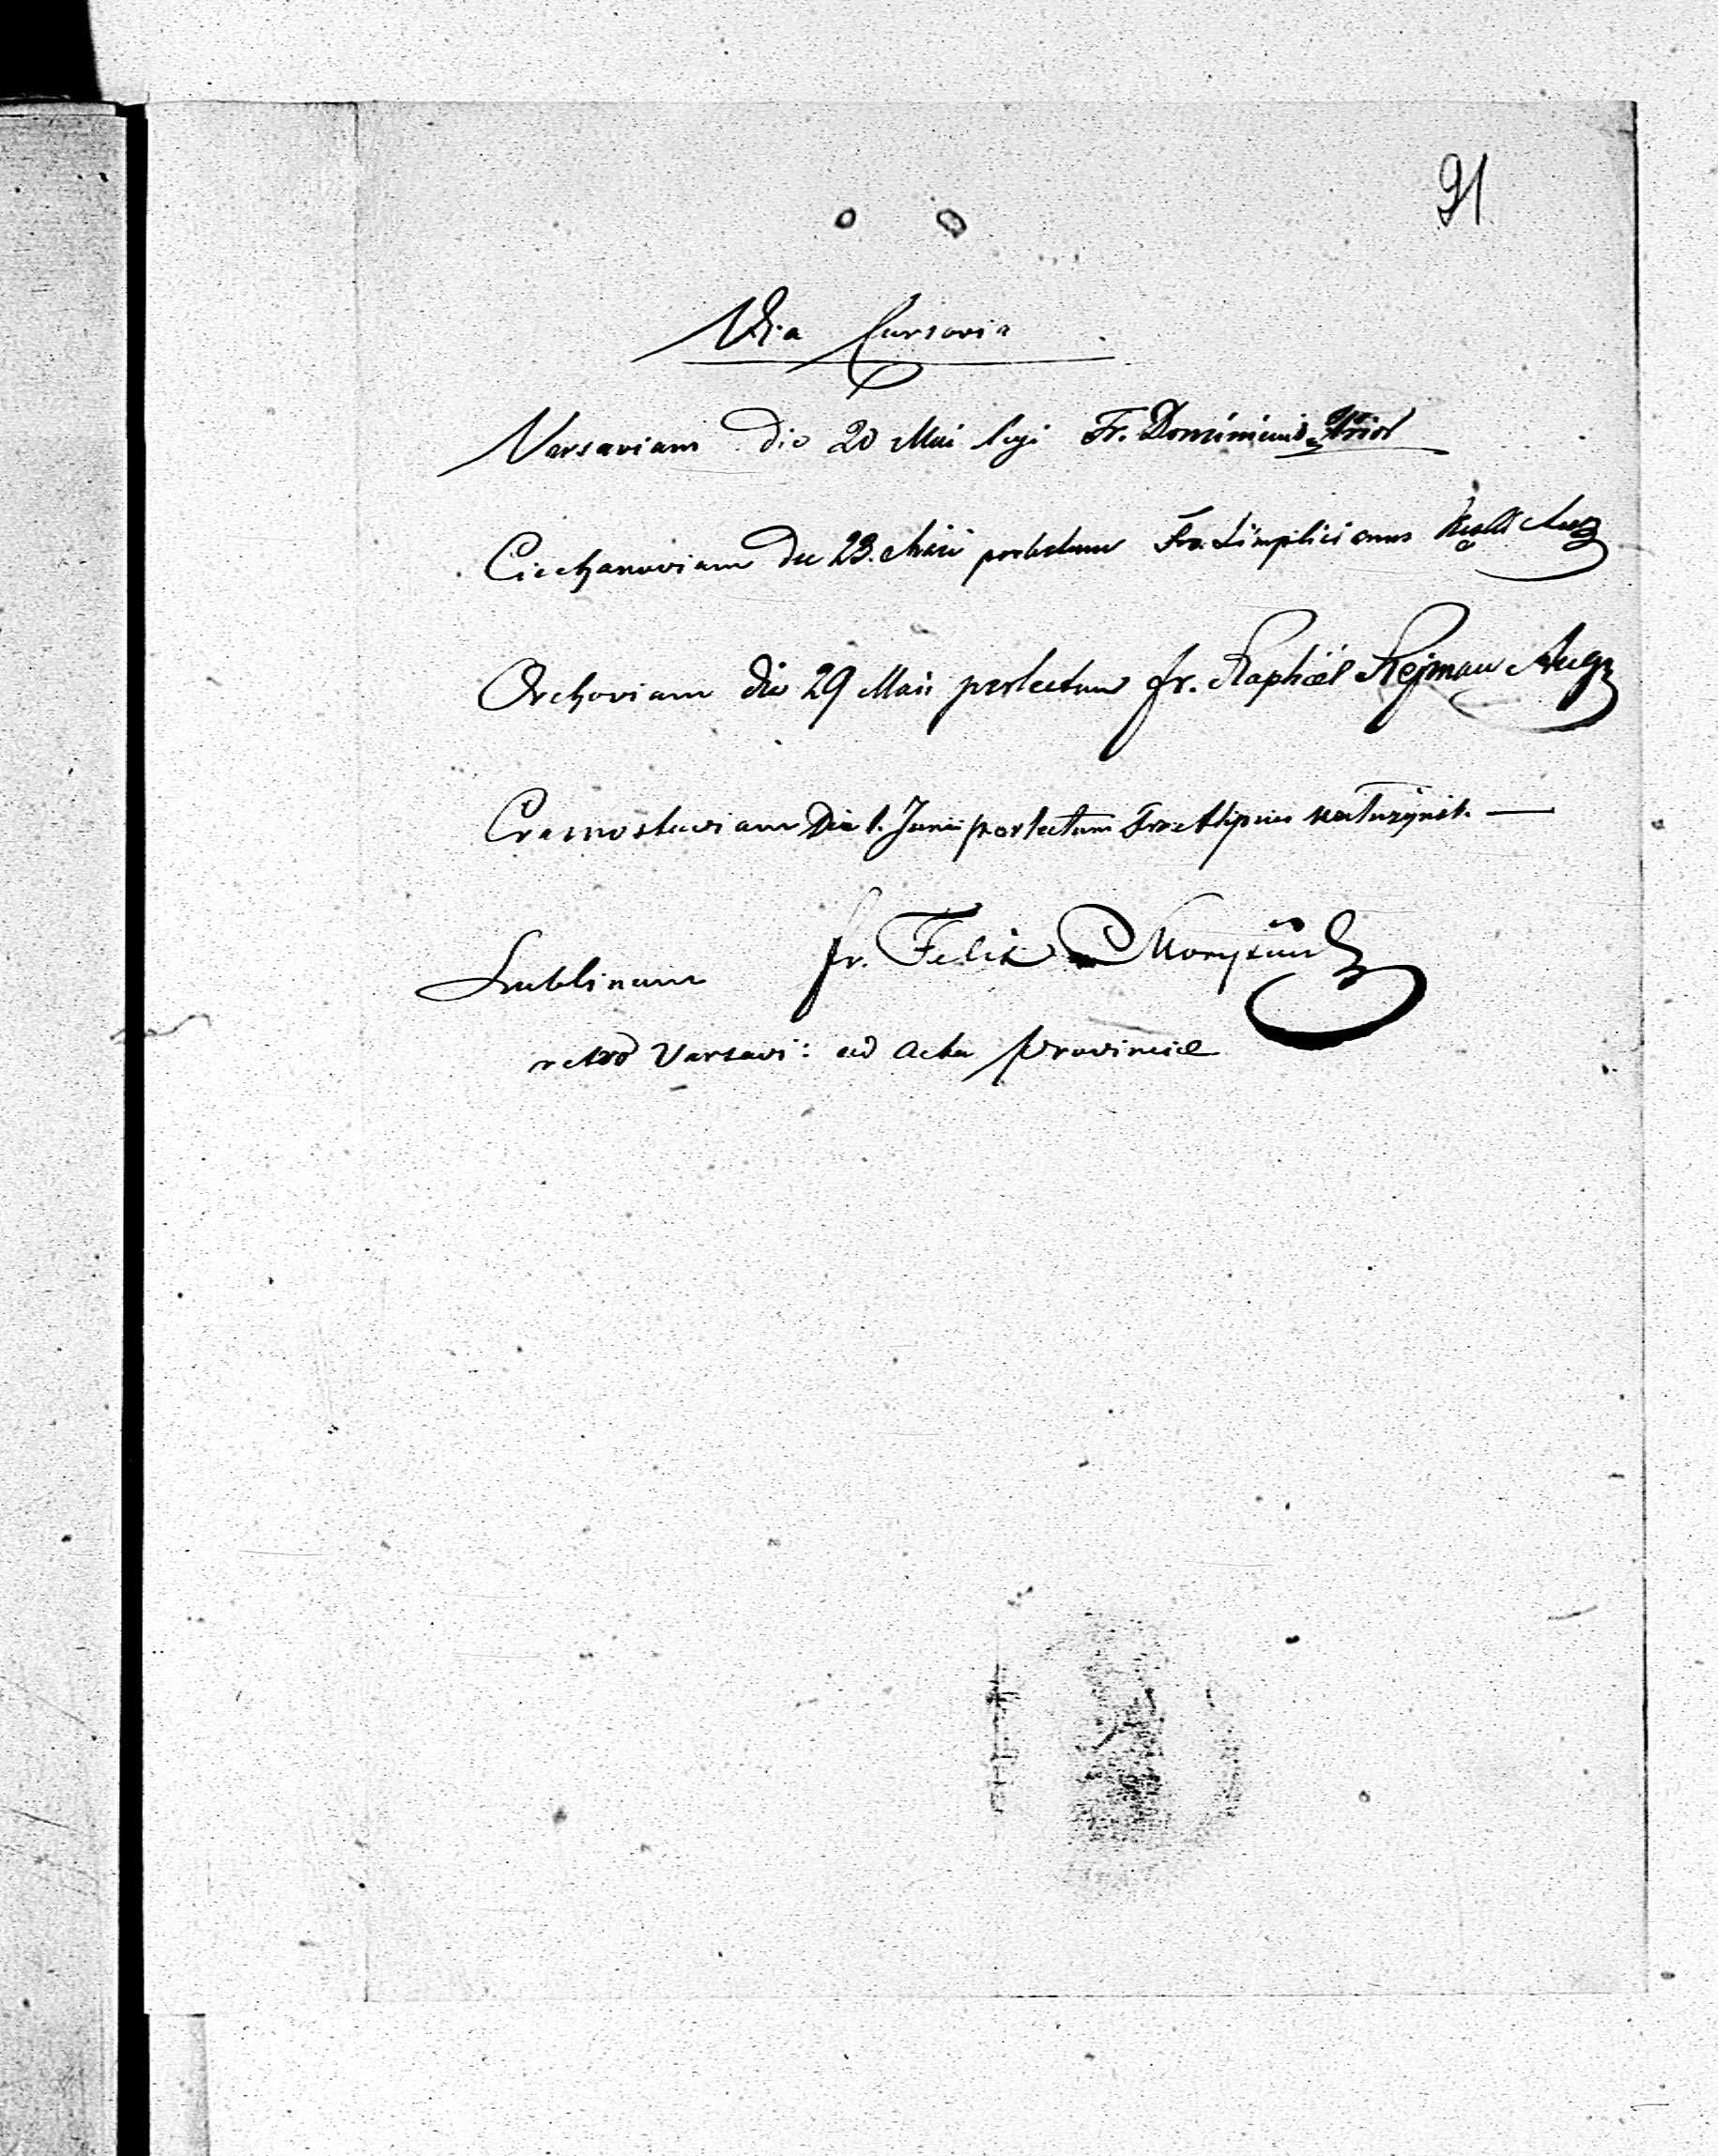 91
Via Cursoria
Varsaviam die 20 Maii legi Fr. Dominicus Prior
Ciechanoviam die 23. Maii perlectum Fr. Simplicianus Aug
Orchoviam die 29 Maii perlectum fr. Raphäel Rejman Aug
Crasnostaviam Die 1. Junii perlectum Fr. Alipius
Lublinum fr. Felix
retro Varsavi: ad Acta Provinciæ